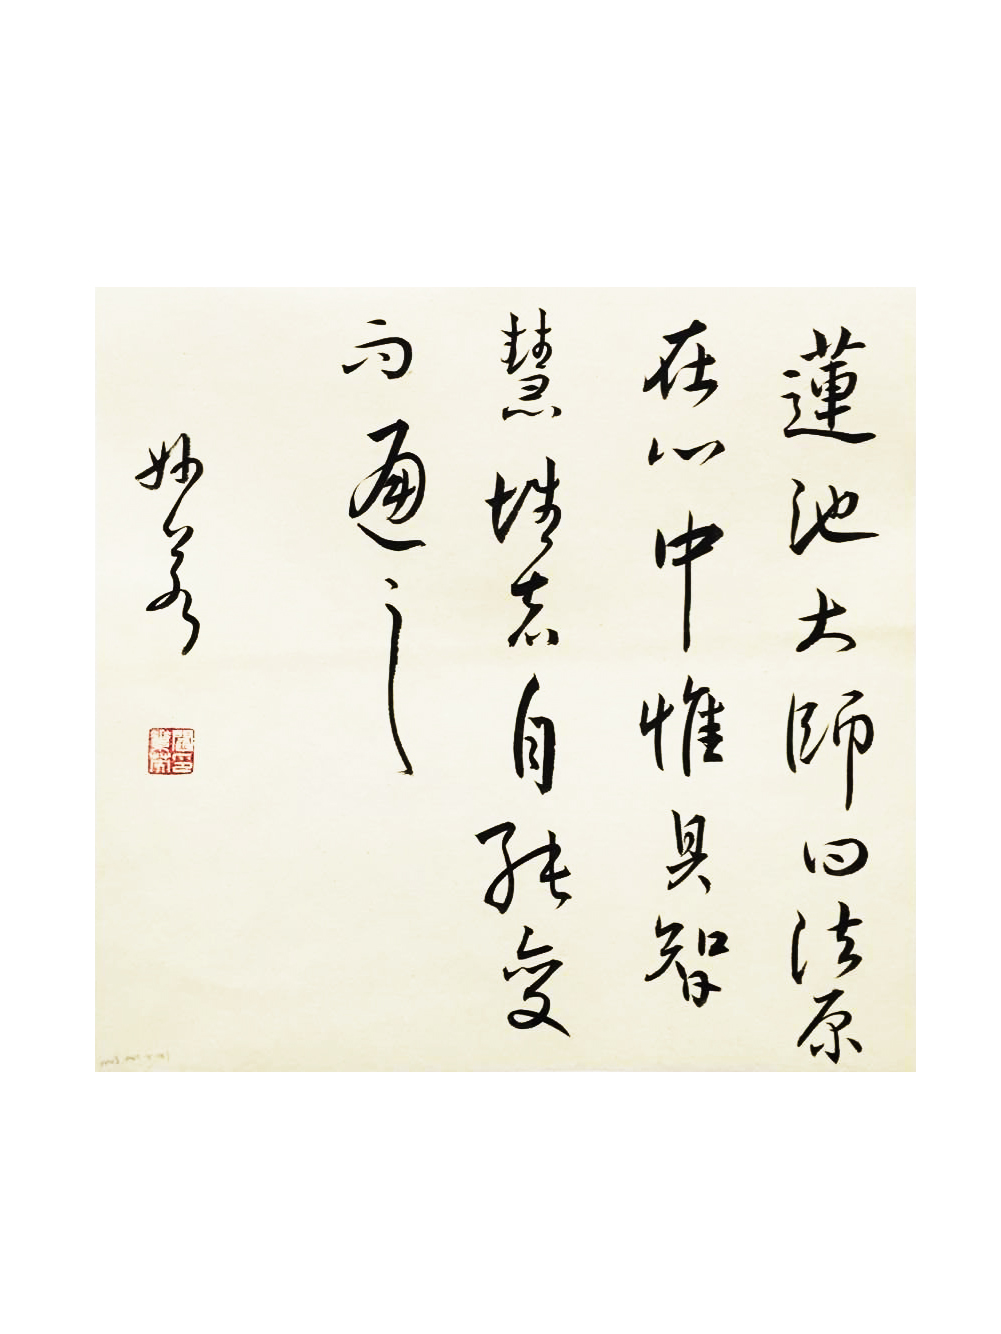 蓮池大師曰法原
在心中惟具智
慧性者自能變
而通之
妙善